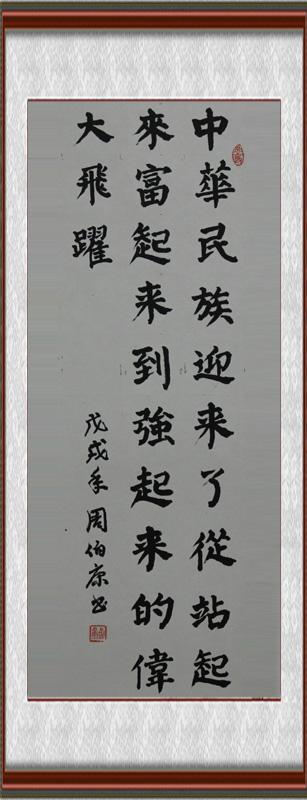 中華民族迎来了從站起
來富起来到強起来的偉
大飛躍
戊戌年周伯康书